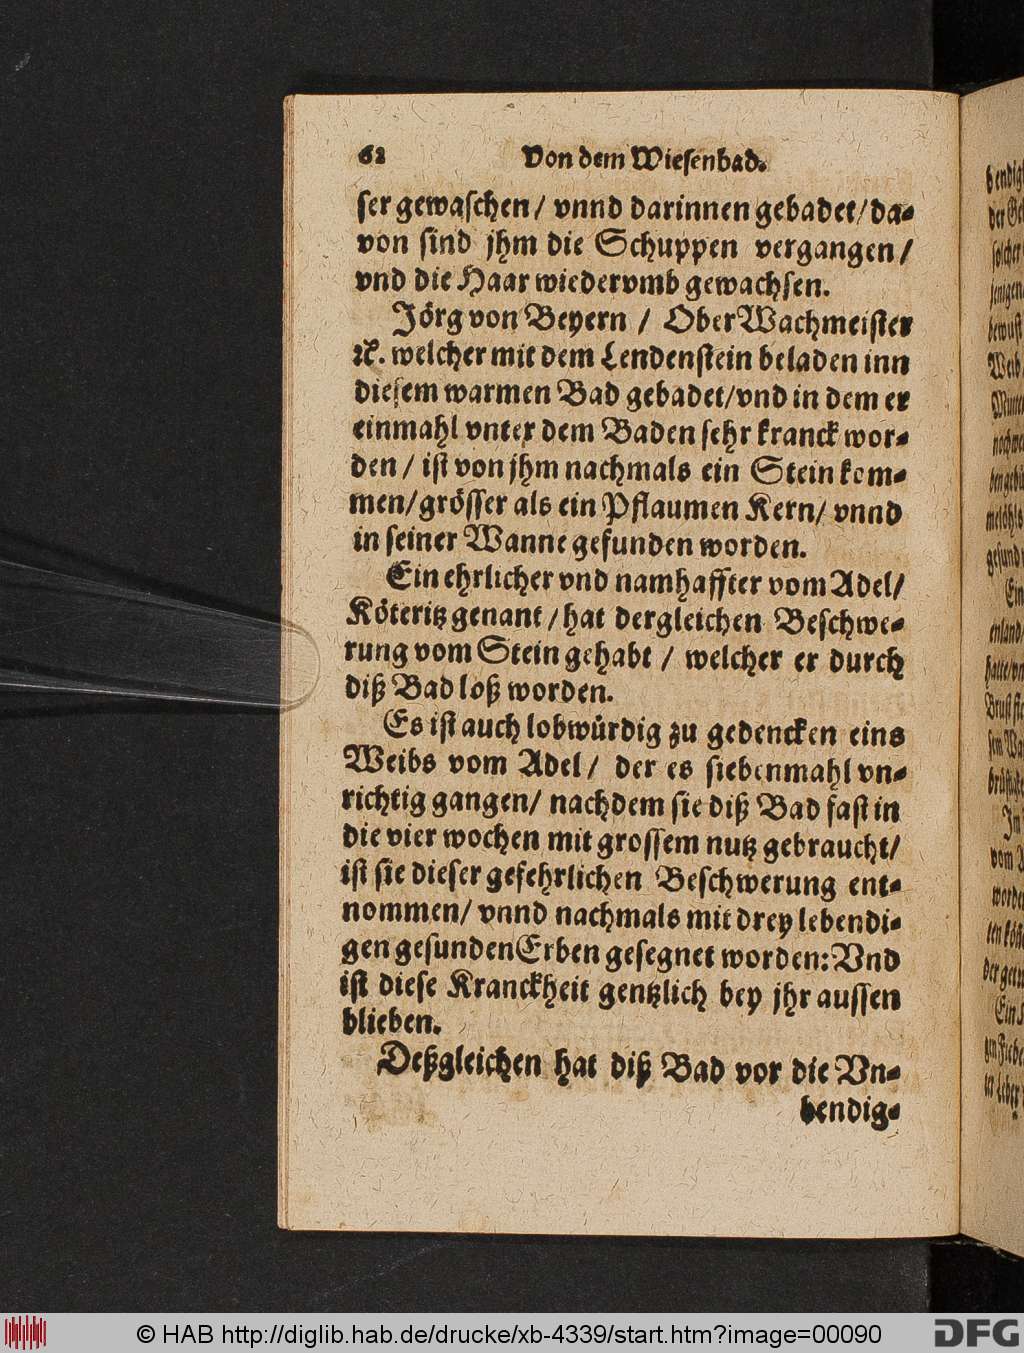 62 Von dem Wiesenbad.
ser gewaschen / vnnd darinnen gebadet / da-
von sind jhm die Schuppen vergangen /
vnd die Haar wiedervmb gewachsen.
Jörg von Beyern / Ober Wachmeister
ꝛc. welcher mit dem Lendenstein beladen inn
diesem warmen Bad gebadet / vnd in dem er
einmahl vnter dem Baden sehr kranck wor-
den / ist von jhm nachmals ein Stein kom-
men / grösser als ein Pflaumen Kern / vnnd
in seiner Wanne gefunden worden.
Ein ehrlicher vnd namhaffter vom Adel /
Köteritz genant / hat dergleichen Beschwe-
rung vom Stein gehabt / welcher er durch
diß Bad loß worden.
Es ist auch lobwürdig zu gedencken eins
Weibs vom Adel / der es siebenmahl vn-
richtig gangen / nachdem sie diß Bad fast in
die vier wochen mit grossem nutz gebraucht /
ist sie dieser gefehrlichen Beschwerung ent-
nommen / vnnd nachmals mit drey lebendi-
gen gesunden Erben gesegnet worden: Vnd
ist diese Kranckheit gentzlich bey jhr aussen
blieben.
Deßgleichen hat diß Bad vor die Vn-
bendig-
© HAB http://diglib.hab.de/drucke/xb-4339/start.htm?image=00090
DFG